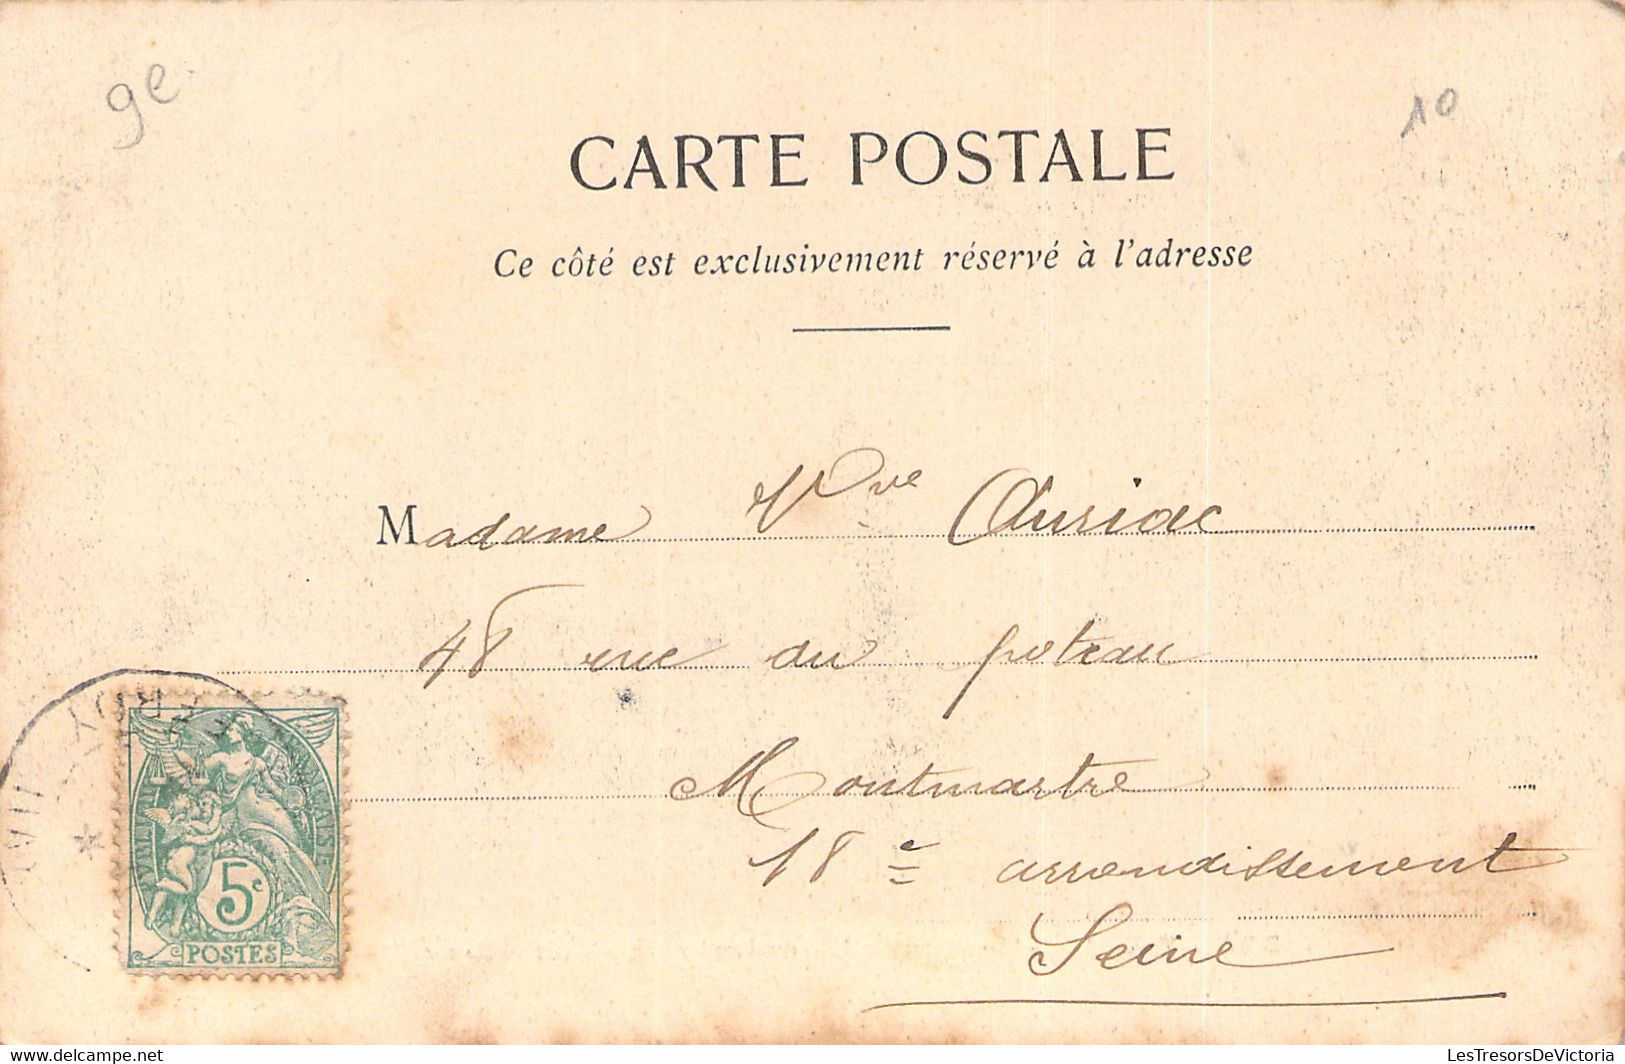 9e
10
CARTE POSTALE
Ce côté est exclusivement réservé à l'adresse
Madame Vve Auriac
48 rue du poteau
Montmartre
18e arrondissement
Seine
RÉPUBLIQUE FRANÇAISE
5c
POSTES
delcampe.net
LesTresorsDeVictoria